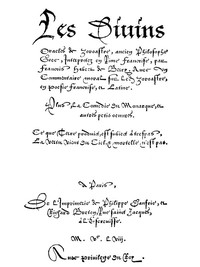 Les Diuins
Oracles de Zoroastre, ancien Philosophe
Grec, Interpretez en Rime Francoise, par
François Habert de Berry. Auec vn
Commentaire moral sur ledit Zoroastre,
en poësie Francoise, & Latine.
Plus, La Comedie du Monarque, &
autres petis œuures.
Ce que l'eur produit, est subiect à
La vertu vient du Ciel,
A Paris,
De l'Imprimerie de Philippe Danfrie, et
Richard Breton, Rue saint Jacques,
à l'Escreuisse.
M. V. L. Viij.
Auec priuilege du Roy.